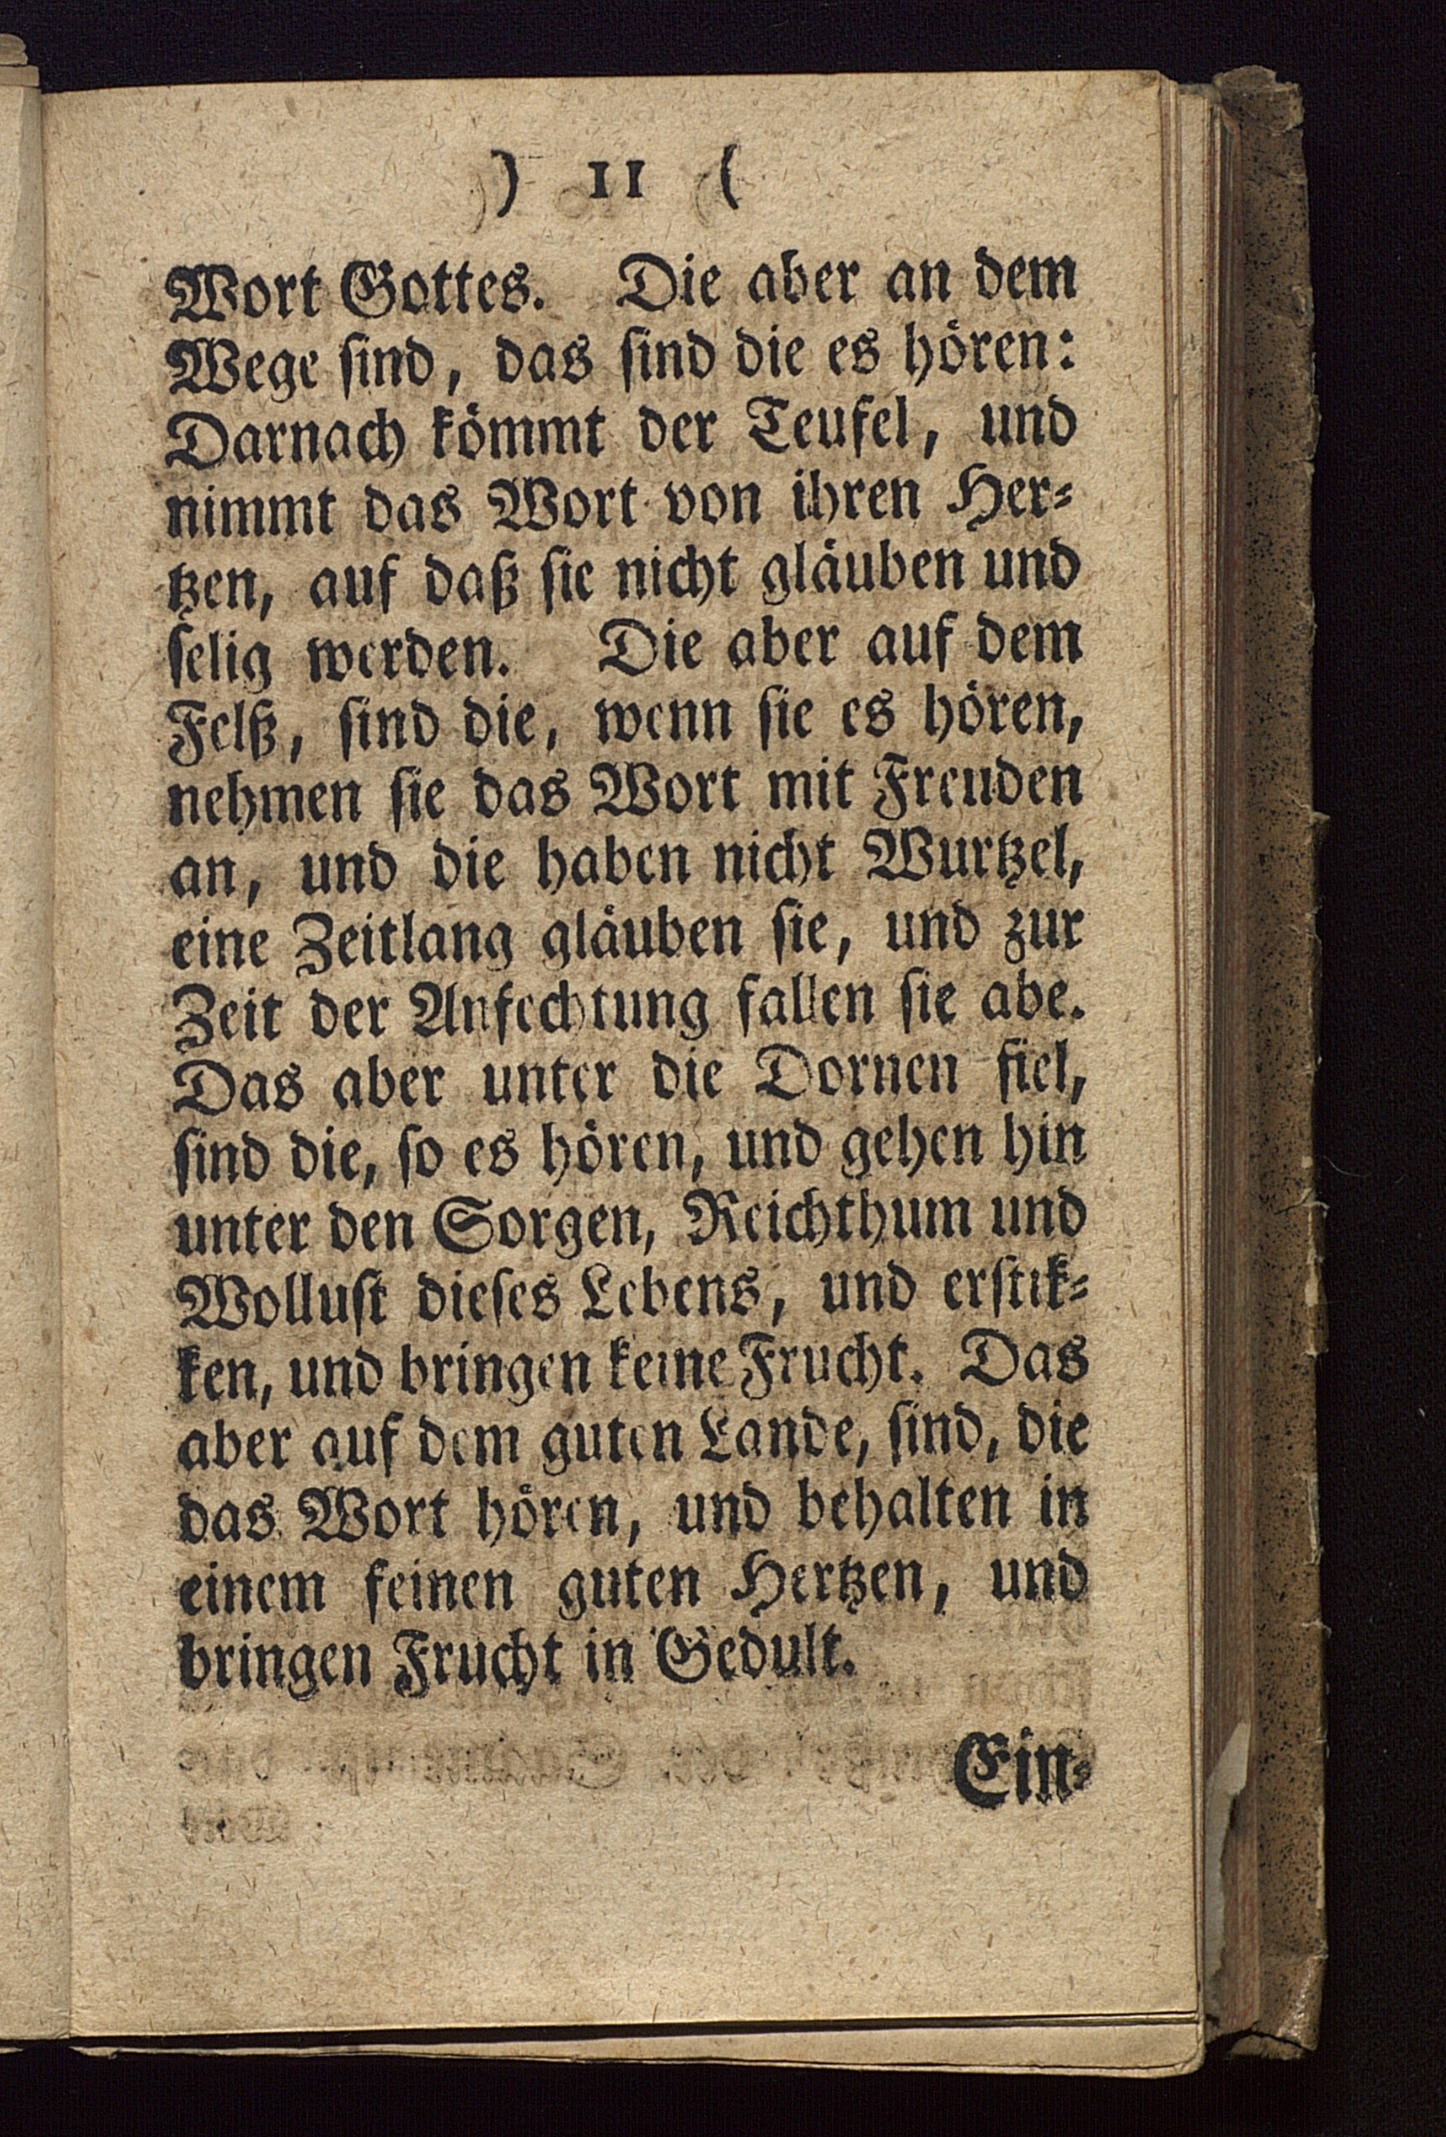 ) 11 (
Wort Gottes. Die aber an dem
Wege ſind, das ſind die es hören:
Darnach kömmt der Teufel, und
nimmt das Wort von ihren Her-
tzen, auf daß ſie nicht gläuben und
ſelig werden. Die aber auf dem
Felß, ſind die, wenn ſie es hören,
nehmen ſie das Wort mit Freuden
an, und die haben nicht Wurtzel,
eine Zeitlang gläuben ſie, und zur
Zeit der Anfechtung fallen ſie abe.
Das aber unter die Dornen fiel,
ſind die, ſo es hören, und gehen hin
unter den Sorgen, Reichthum und
Wolluſt dieſes Lebens, und erſtik-
ken, und bringen keine Frucht. Das
aber auf dem guten Lande, ſind, die
das Wort hören, und behalten in
einem feinen guten Hertzen, und
bringen Frucht in Gedult.
Ein-